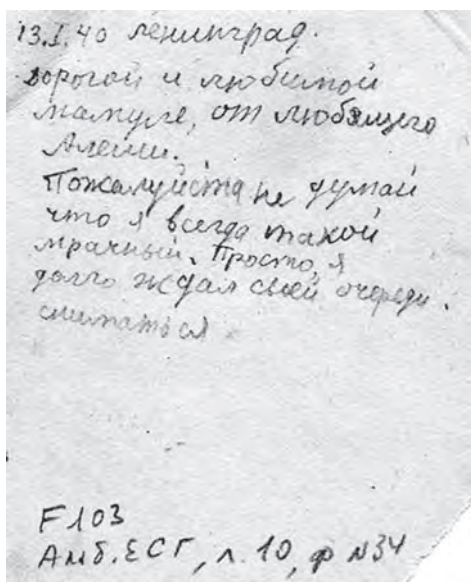 13.I.40 Ленинград.
Дорогой и любимой
мамуле, от любящего
Алеши.
Пожалуйста не думай
что я всегда такой
мрачный. Просто, я
долго ждал своей очереди.
сниматься
F103
Амб. ЕСГ, л. 10, ф N34